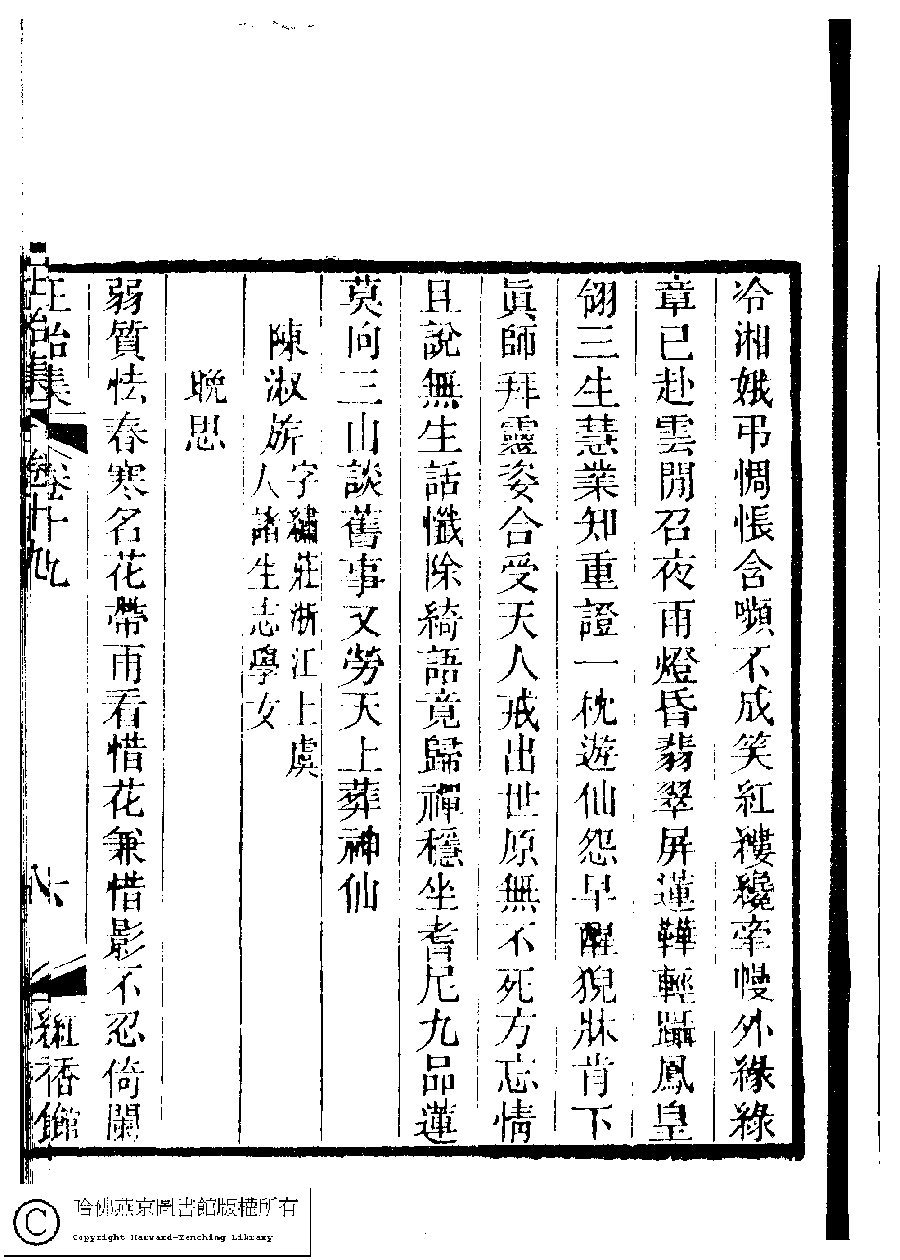 冷湘娥弔惆悵含嚬不成笑紅褸纔牽幔外緣綠
章已赴雲閒召夜雨燈昏翡翠屏蓮韡輕躡鳳皇
翎三生慧業知重證一枕遊仙怨早醒猊牀肯下
眞師拜靈姿合受天人戒出世原無不死方忘情
且說無生話懺除綺語竟歸禪穩坐耆尼九品蓮
莫向三山談舊事又勞天上葬神仙
陳淑旂字繡莊浙江上虞
人諸生志學女
晩思
弱質怯春寒名花帶雨看惜花兼惜影不忍倚闌
正始集
卷十九
六
紅香館
哈佛燕京圖書館版權所有
Copyright Harvard-Yenching Library